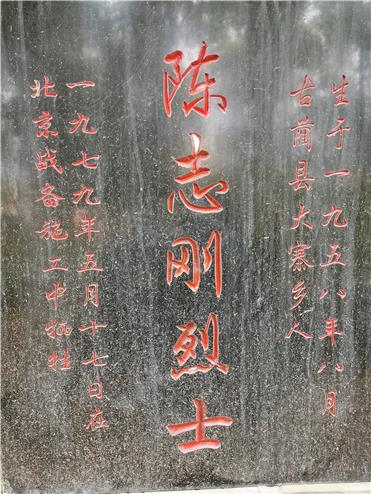 生于一九五八年八月
古蔺县大寨乡人
陈志刚烈士
一九七九年五月十七日在
北京战备施工中牺牲